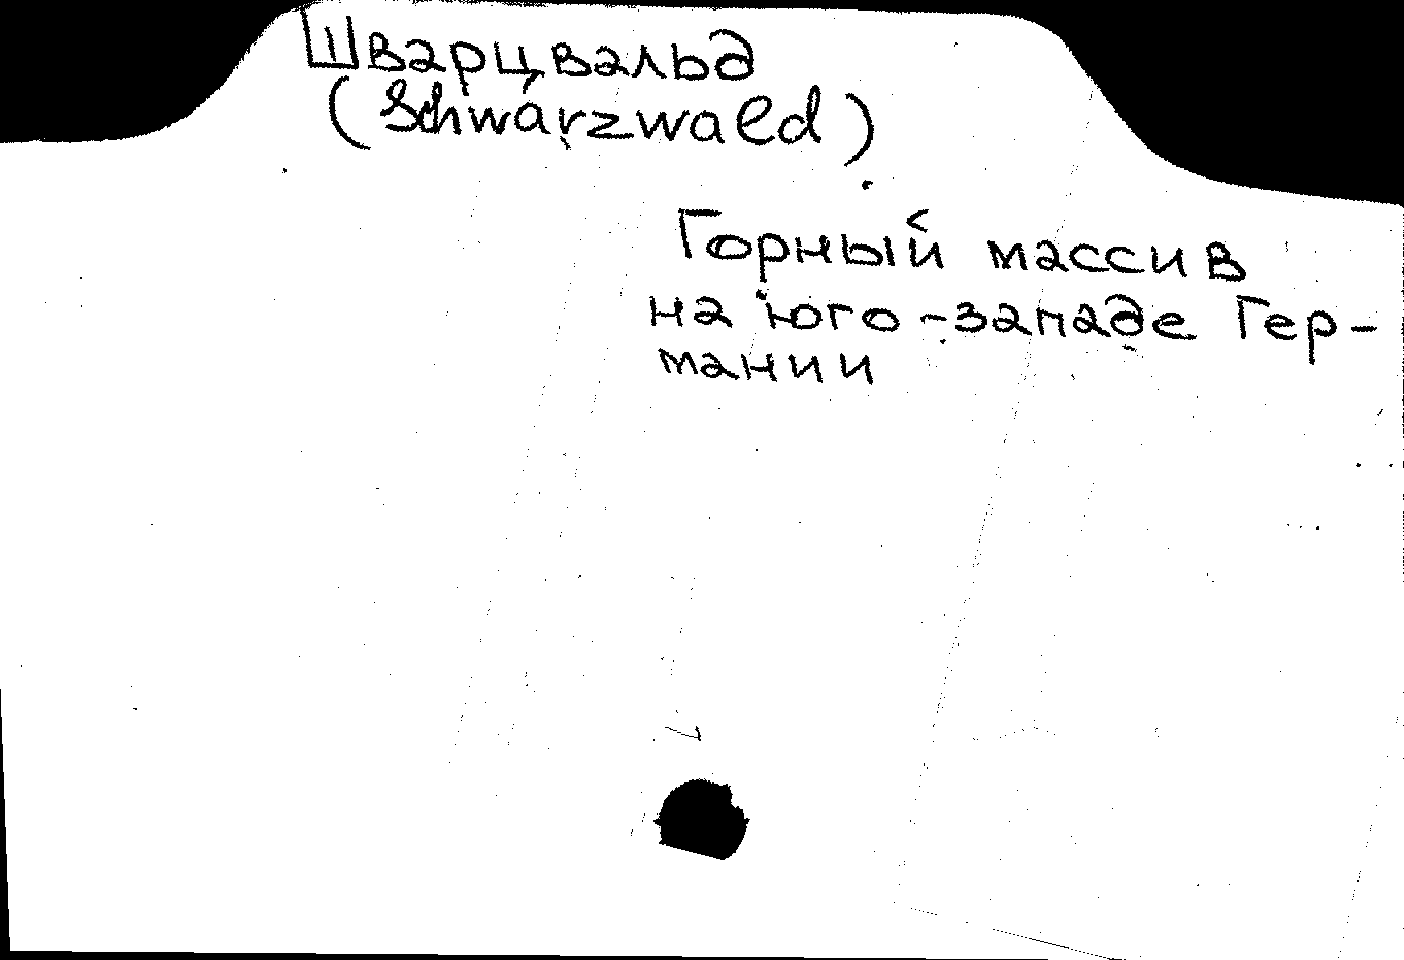 Шварцвальд
(Schwarzwald)
Горный массив
на юго-западе Гер-
мании